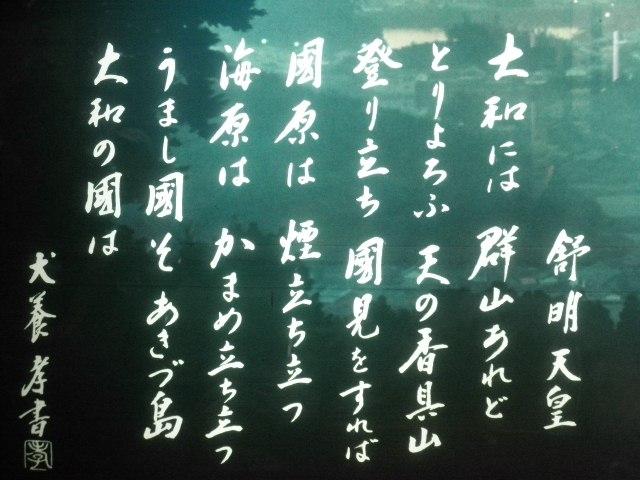 舒明天皇
大和には 群山あれど
とりよろふ 天の香具山
登り立ち 國見をすれば
國原は 煙立ち立つ
海原は かまめ立ち立つ
うまし國そ あきづ島
大和の國は
犬養孝書
孝